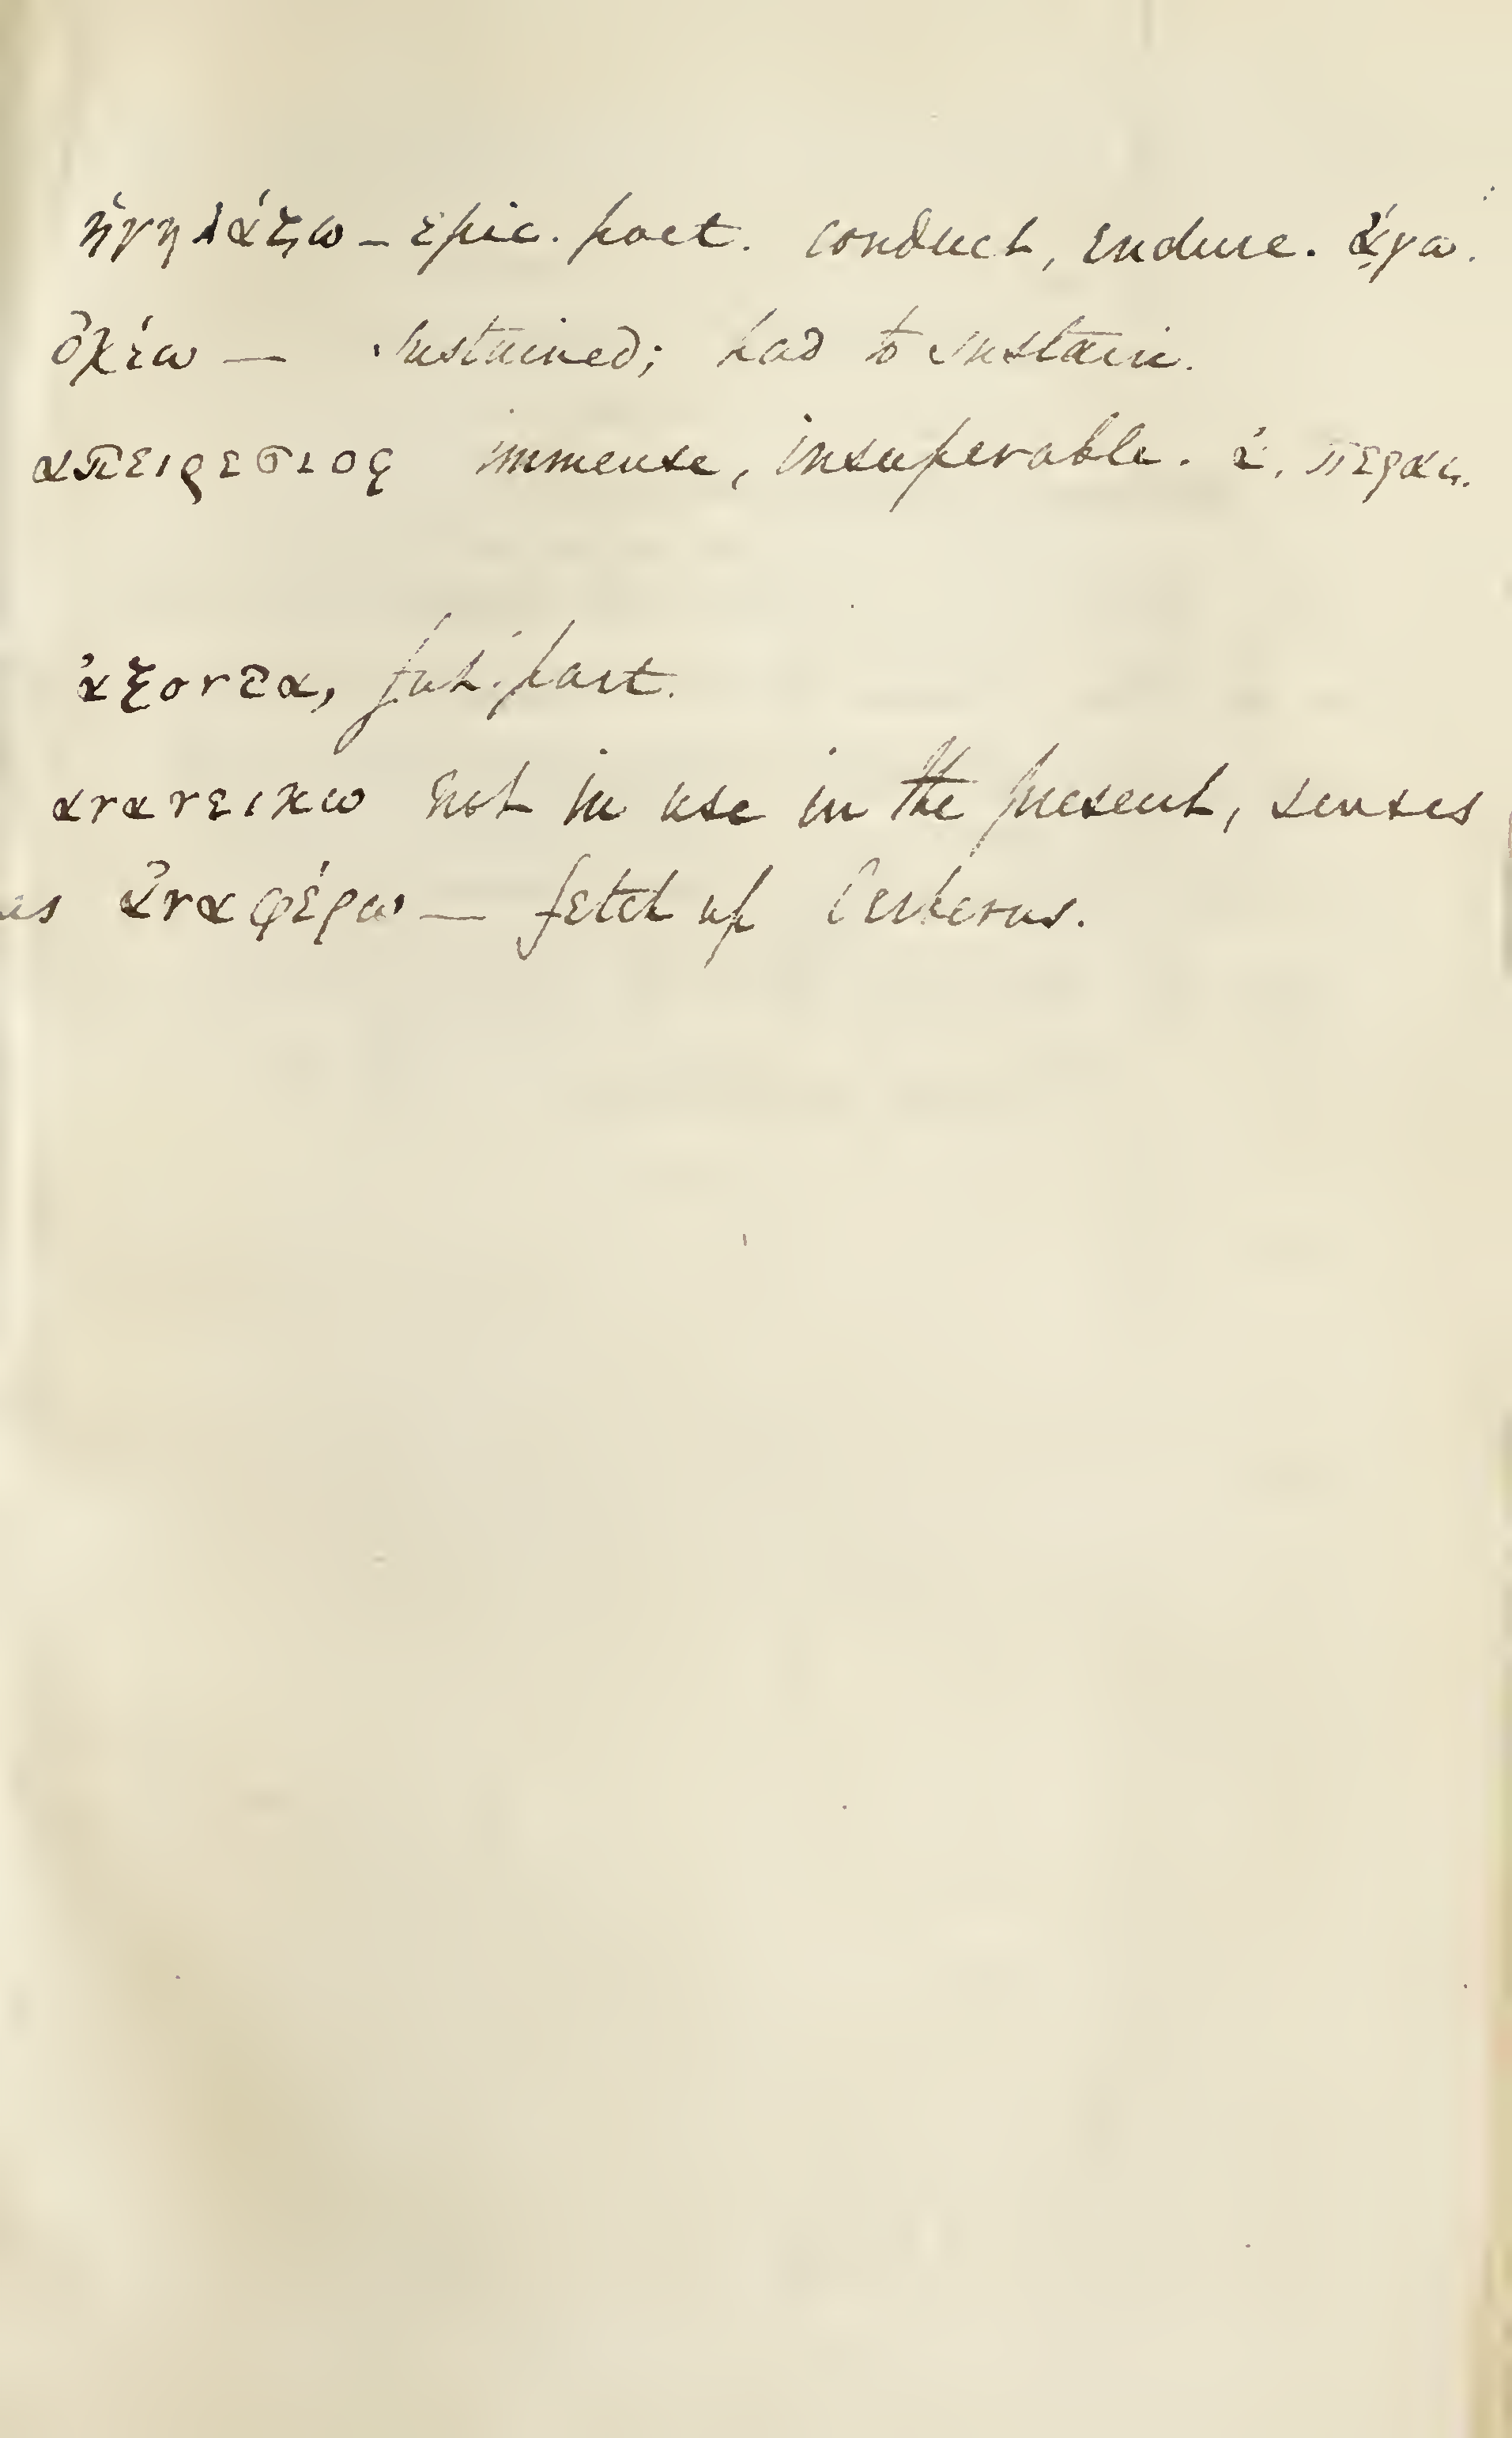 ἡγηλάζω – epic. poet. conduct, endure. ἄγω.
ὀχέω — sustained; had to sustain.
απειρεσιος immense, insuperable. ἀ. περας.
ἀξοντα, fut. part.
ανανεικω not in use in the present, senses
as ἀναφέρω — fetch up Cerberus.